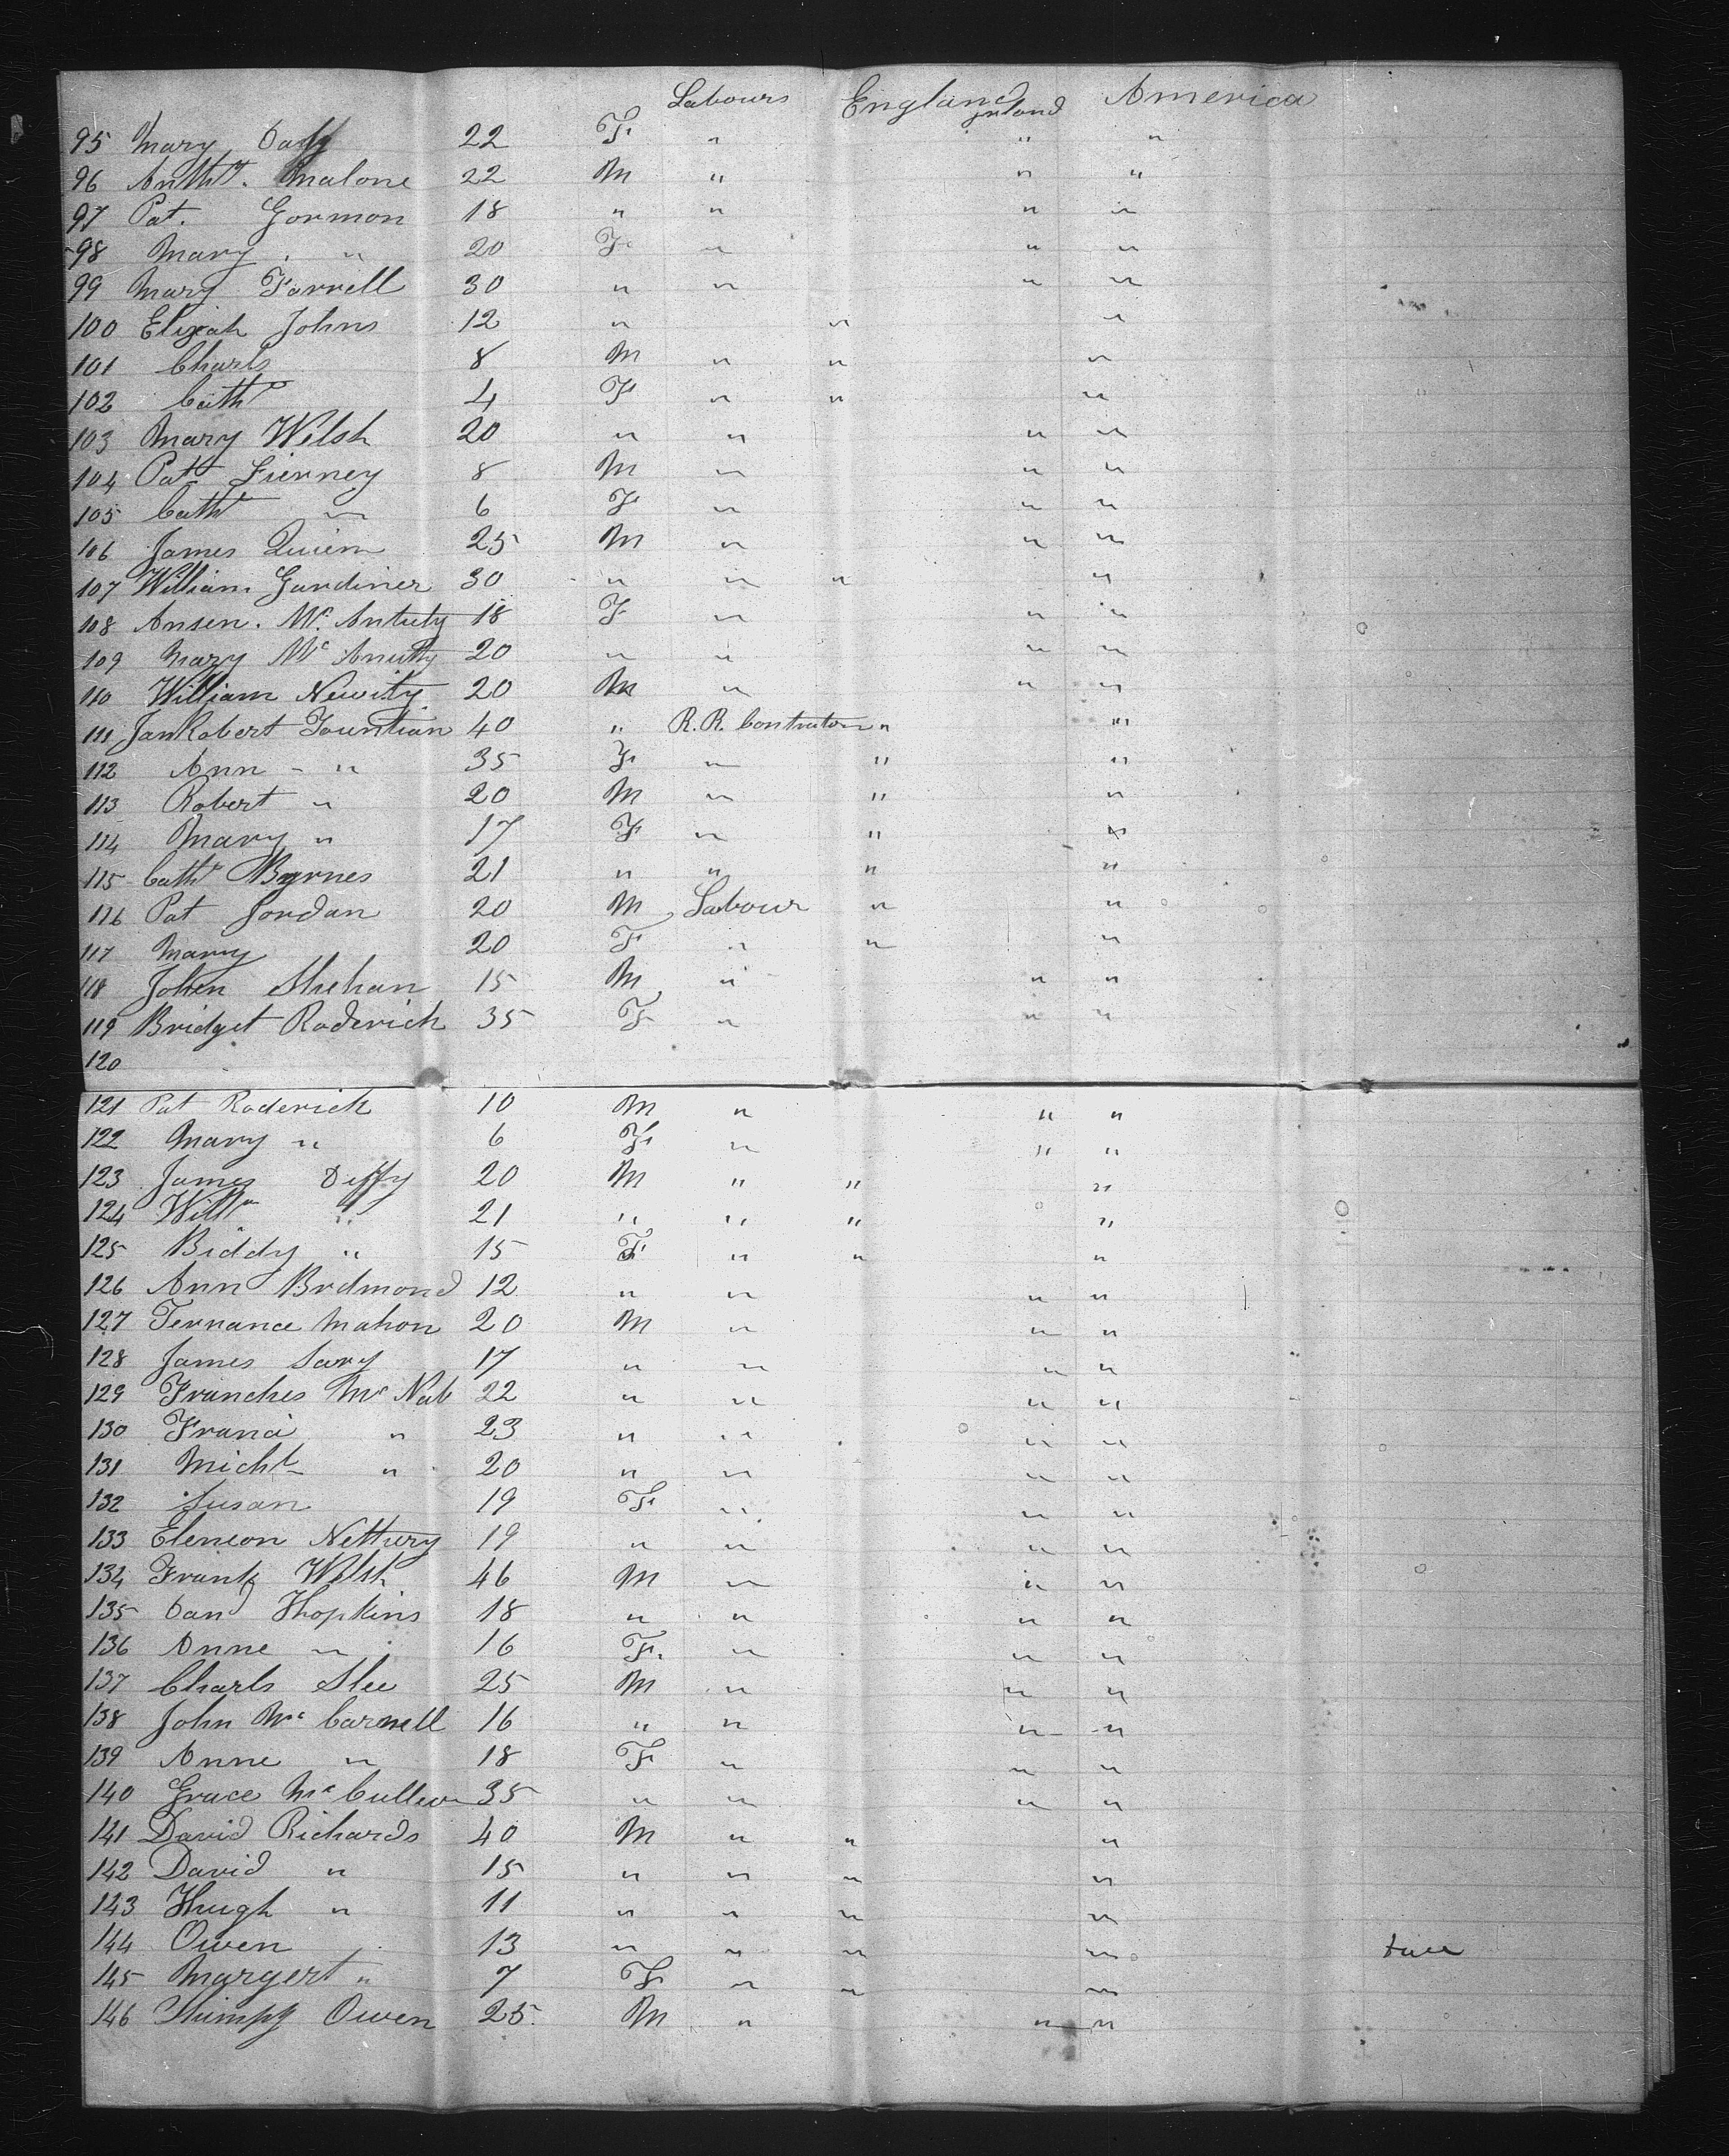 Labours England Ireland America
95 Mary Daly 22 F " " "
96 Anthy. Malone 22 M " " "
97 Pat. Gormon 18 " " " "
98 Mary . " 20 F " " "
99 Mary Farrell 30 " " " "
100 Elizah Johns 12 " " "
101 Charls 8 M " " "
102 Cath 4 F " " "
103 Mary Welsh 20 " " " "
104 Pat Tierney 8 M " " "
105 Cath " 6 F " " "
106 James Quien 25 M " " "
107 William Gardiner 30 " " " "
108 Ansen. Mc. Antuty 18 F " " "
109 Mary Mc Anutty 20 " " " "
110 William Newity 20 M " " "
111 Jan Robert Fountian 40 " R.R. Contrator " "
112 Ann - " 35 F " " "
113 Robert " 20 M " " "
114 Mary " 17 F " " "
115 Cath Byrnes 21 " " " "
116 Pat Jordan 20 M Labour " "
117 Mary 20 F " " "
118 John Shehan 15 M " " "
119 Bridget Roderick 35 F " " "
120
121 Pat Roderick 10 M " " "
122 Mary " 6 F " " "
123 James Deffy 20 M " " "
124 Willm " 21 " " " "
125 Biddy " 15 F " " "
126 Ann Brdmond 12 " " " "
127 Ternance Mahon 20 M " " "
128 James Lary 17 " " " "
129 Franches Mc Nab 22 " " " "
130 Franci " 23 " " " "
131 Michl " 20 " " " "
132 Susan 19 F " " "
133 Eleneon Nettury 19 " " " "
134 Frank Welsh 46 M " " "
135 Dand Hopkins 18 " " " "
136 Anne " 16 F. " " "
137 Charls Slee 25 M " " "
138 John Mc Carnell 16 " " " "
139 Anne " 18 F " " "
140 Grace Mc Cullen 35 " " " "
141 David Richards 40 M " " "
142 David " 15 " " " "
143 Hugh " 11 " " " "
144 Owen 13 " " " "
145 Margert " 7 F " " "
146 Owen 25 M " " "